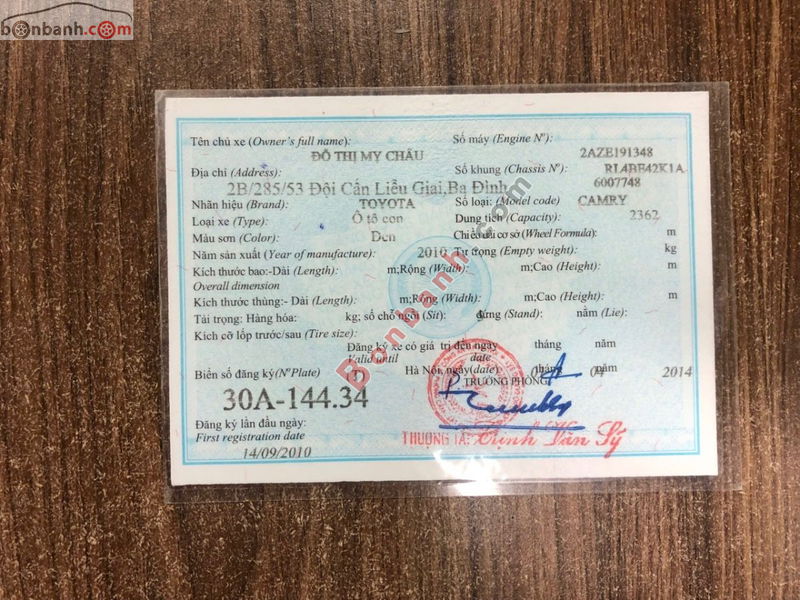 bonbanh.com
Tên chủ xe (Owner's full name): Số máy (Engine Nº):
ĐỖ THỊ MY CHÂU 2AZE191348
Địa chỉ (Address): Số khung (Chassis Nº): RL4BE42K1A
2B/285/53 Đội Cấn Liễu Giai,Ba Đình 6007748
Nhãn hiệu (Brand): TOYOTA Số loại: (Model code) CAMRY
Loại xe (Type): Ô tô con Dung tích (Capacity): 2362
Màu sơn (Color): Đen Chiều dài cơ sở (Wheel Formula): m
Năm sản xuất (Year of manufacture): 2010 Tự trọng (Empty weight): kg
Kích thước bao:-Dài (Length): m;Rộng (Width): m;Cao (Height): m
Overall dimension
Kích thước thùng:- Dài (Length): m;Rộng (Width): m;Cao (Height): m
Tải trọng: Hàng hóa: kg; số chỗ ngồi (Sit): đứng (Stand): nằm (Lie):
Kích cỡ lốp trước/sau (Tire size):
Đăng ký xe có giá trị đến ngày tháng năm
Valid until date
Biển số đăng ký(Nº Plate) Hà Nội, ngày(date) tháng 04 2014
TRƯỞNG PHÒNG
30A-144.34
Đăng ký lần đầu ngày:
First registration date
14/09/2010
THƯỢNG TÁ: Trịnh Văn Sỹ
Bonbanh.com